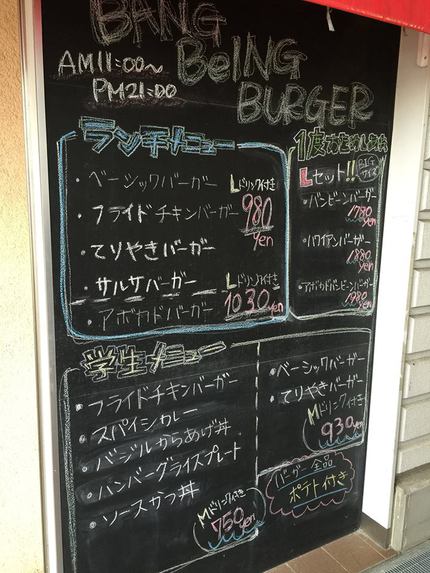 BANG
BeING
BURGER
AM11:00〜
PM21:00
ランチメニュー
・ベーシックバーガー
・フライドチキンバーガー
・てりやきバーガー
Lドリンク付き
980
yen
・サルサバーガー
・アボカドバーガー
Lドリンク付き
1030yen
1度は
Lセット!!
BIG
サイズ
・バンビーンバーガー
1780
yen
・ハワイアンバーガー
1880
yen
・アボカドバンビーンバーガー
1980
yen
学生メニュー
・フライドチキンバーガー
・スパイシーカレー
・バジルからあげ丼
・ハンバーグライスプレート
・ソースかつ丼
Mドリンク付き
750yen
・ベーシックバーガー
・てりやきバーガー
Mドリンク付き
930yen
バーガー全品
ポテト付き